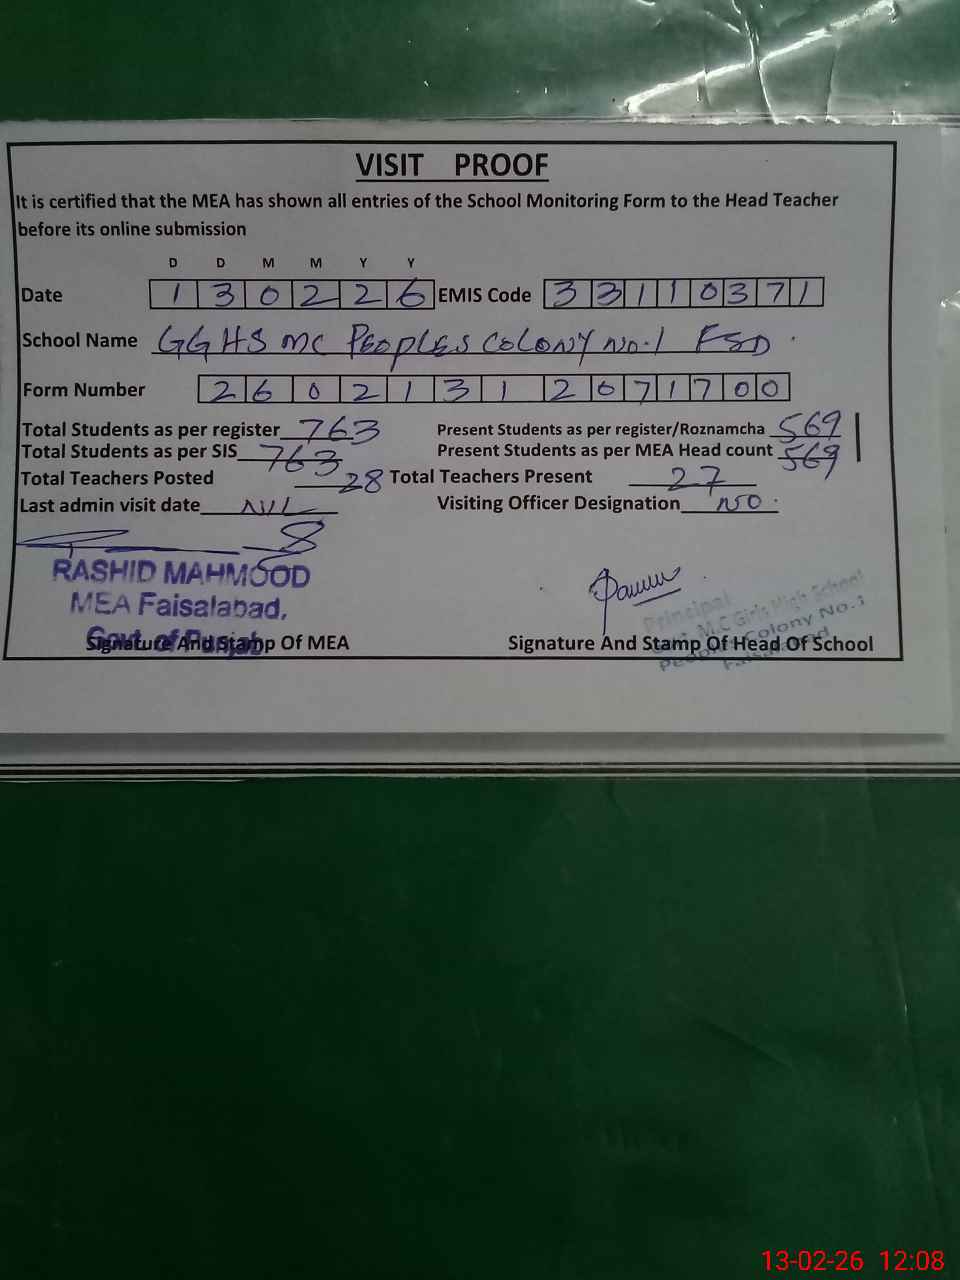 VISIT PROOF
It is certified that the MEA has shown all entries of the School Monitoring Form to the Head Teacher
before its online submission
D D M M Y Y
Date 1 3 0 2 2 6 EMIS Code 3 3 1 1 0 3 7 1
School Name GGHS MC PEOPLES COLONY NO.1 FSD
Form Number 2 6 0 2 1 3 1 2 0 7 1 7 0 0
Total Students as per register 763 Present Students as per register/Roznamcha 569
Total Students as per SIS 763 Present Students as per MEA Head count 569
Total Teachers Posted 28 Total Teachers Present 27
Last admin visit date NIL Visiting Officer Designation NO
RASHID MAHMOOD
MEA Faisalabad,
Govt. of Punjab
Signature And Stamp Of MEA
Principal
Govt. M.C Girls High School
Peoples Colony No.1
Faisalabad
Signature And Stamp Of Head Of School
13-02-26 12:08